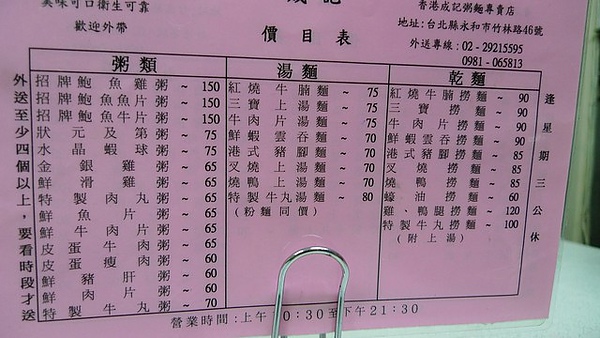 美味可口衛生可靠
歡迎外帶
成記
價目表
香港成記粥麵專賣店
地址:台北縣永和市竹林路46號
外送專線:02-29215595
0981-065813
外送至少四個以上,要看時段才送
粥類
招牌鮑魚雞粥 ~ 150
招牌鮑魚魚片粥 ~ 150
招牌鮑魚牛片粥 ~ 150
狀元及第粥 ~ 75
水晶蝦球粥 ~ 75
金銀雞粥 ~ 65
鮮滑雞粥 ~ 65
特製肉丸粥 ~ 65
鮮魚片粥 ~ 65
鮮牛肉片粥 ~ 65
皮蛋牛肉粥 ~ 65
皮蛋瘦肉粥 ~ 60
鮮豬肝粥 ~ 60
鮮肉片粥 ~ 60
特製牛丸粥 ~ 70
湯麵
紅燒牛腩麵 ~ 75
三寶上湯麵 ~ 75
牛肉片湯麵 ~ 75
鮮蝦雲吞麵 ~ 70
港式豬腳麵 ~ 70
叉燒上湯麵 ~ 70
燒鴨上湯麵 ~ 70
特製牛丸湯麵 ~ 80
(粉麵同價)
乾麵
紅燒牛腩撈麵 ~ 90
三寶撈麵 ~ 90
牛肉片撈麵 ~ 90
鮮蝦雲吞撈麵 ~ 90
港式豬腳撈麵 ~ 85
叉燒撈麵 ~ 85
燒鴨撈麵 ~ 85
蠔油撈麵 ~ 60
雞、鴨腿撈麵 ~ 120
特製牛丸撈麵 ~ 100
(附上湯)
逢星期三公休
營業時間:上午10:30至下午21:30